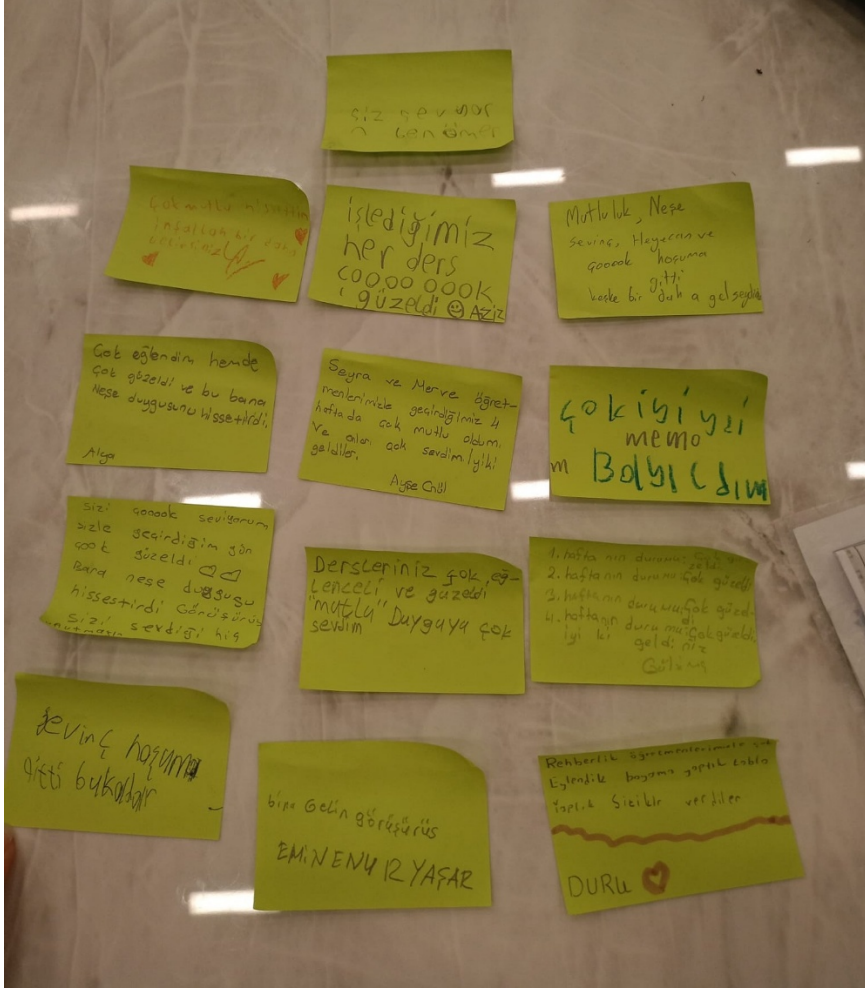 siz
Çok mutlu hissettim
inşallah bir daha
gelirsiniz
işlediğimiz
her ders
ÇOOOO OOOK
güzeldi ☺ Aziz
Mutluluk, Neşe
sevinç, Heyecan ve
çooook hoşuma
gitti
keşke bir daha gelseydin
Çok eğlendim hemde
çok güzeldi ve bu bana
Neşe duygusunu hissettirdi.
Alya
Seyra ve Merve öğret-
menlerimizle geçirdiğimiz 4
haftada çok mutlu oldum
ve onları çok sevdim iyiki
geldiler.
Ayşe
çok iyi
memo
m Bayıldım
sizi çooook seviyorum
sizle geçirdiğim gün
çook güzeldi ♡♡
Bana neşe duygusu
hissestirdi Görüşürüs
sizi sevdiği hiç
unutmayın
Dersleriniz çok, eğ-
lenceli ve güzeldi
"mutlu" Duyguya çok
sevdim
1. haftanın durumu: Çok g
zeldi
2. haftanın durumu: Çok güzeldi
3. haftanın durumu: Çok güzel-
di
4. haftanın durumu: Çok güzeldi
iyi ki geldi niz
Sevinç hoşuma
gitti bukadar
Gelin görüşürüs
EMİNENUR YAŞAR
Rehberlik öğretmenlerimizle çok
Eğlendik boyama yaptık tablo
Yaptık verdiler
DURU ❤